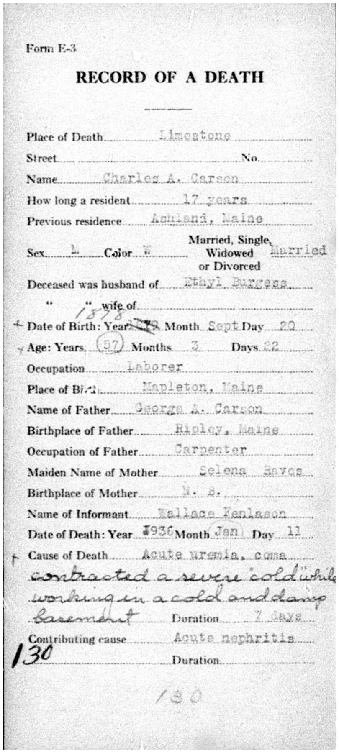 Form E-3
RECORD OF A DEATH
Place of Death Limestone
Street No.
Name Charles A. Carson
How long a resident 17 years
Previous residence Ashland, Maine
Married, Single,
Sex M Color W Widowed Married
or Divorced
Deceased was husband of Ethyl Burgess
" " wife of
1878
+ Date of Birth: Year Month Sept Day 20
+ Age: Years 57 Months 3 Days 22
Occupation Laborer
Place of Birth Mapleton, Maine
Name of Father George A. Carson
Birthplace of Father Ripley, Maine
Occupation of Father Carpenter
Maiden Name of Mother Selena
Birthplace of Mother N. B.
Name of Informant Wallace
Date of Death: Year 1936 Month Jan Day 11
+ Cause of Death Acute uremia, coma
contracted a severe "cold" while
working in a cold and damp
basement Duration 7 days
Contributing cause Acute nephritis
130
Duration
130